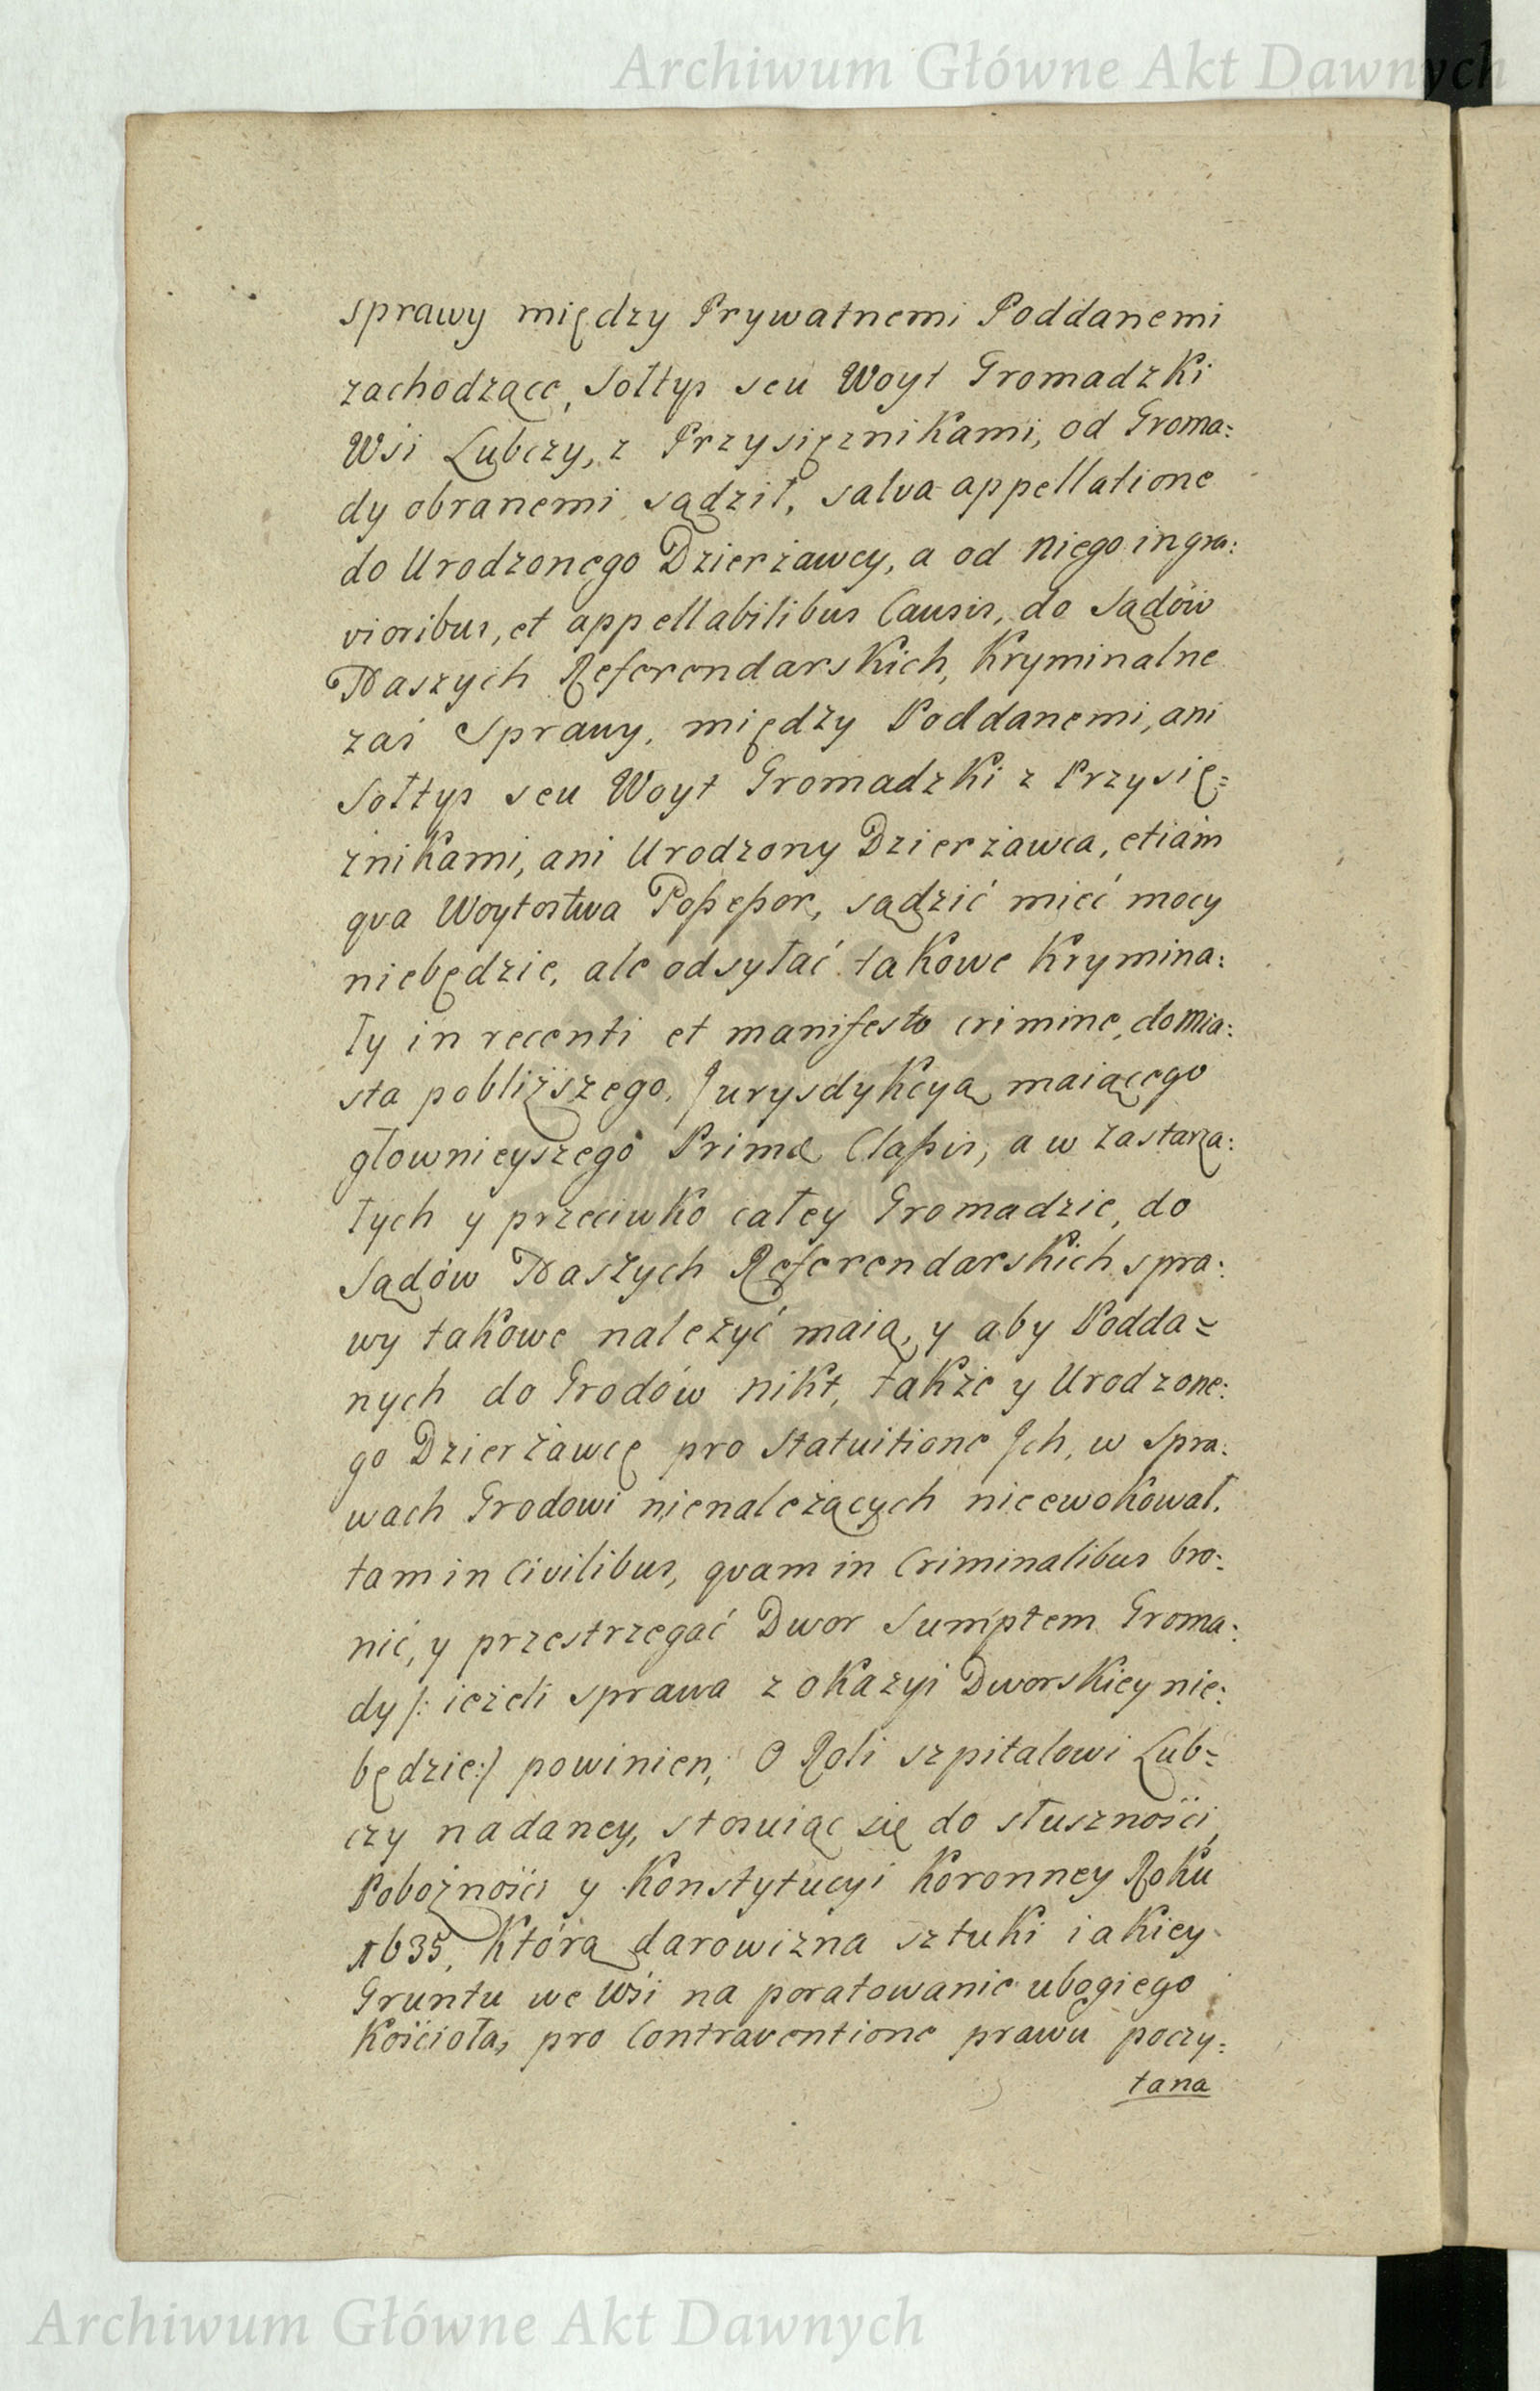 Archiwum Główne Akt Dawnych
sprawy między Prywatnemi Poddanemi
zachodzące, Sołtys seu Woyt Gromadzki
Wsi Lubczy, z Przysięznikami, od Groma:
dy obranemi sądził, salva appellatione
do Urodzonego Dzierżawcy, a od niego in gra:
vioribus, et appellabilibus Causis, do Sądów
Naszych Referendarskich, Kryminalne
zaś Sprawy, między Poddanemi, ani
Sołtys seu Woyt Gromadzki z Przysię=
znikami, ani Urodzony Dzierżawca, etiam
qva Woytostwa Possessor, sądzić mieć mocy
niebędzie, ale odsyłać takowe Krymina:
ły in recenti et manifesto crimine, do Mia:
sta pobliższego, Jurysdykcyą maiącego
głownieyszego Primæ Classis, a w zastarza:
łych y przeciwko całey Gromadzie, do
Sądów Naszych Referendarskich spra:
wy takowe należyć maią, y aby Podda=
nych do Grodów nikt, także y Urodzone:
go Dzierżawcę pro Statuitione Jch, w Spra:
wach Grodowi nienależących nieewokował,
tam in Civilibus, qvam in Criminalibus bro:
nić, y przestrzegać Dwor Sumptem Groma:
dy /: ieżeli sprawa z okazyi Dworskiey nie:
będzie:/ powinien, O Roli szpitalowi Lub=
czy nadaney, stosuiąc się do słuszności,
Pobożności y Konstytucyi Koronney Roku
1635, Którą darowizna sztuki iakiey
Gruntu we Wsi na poratowanie ubogiego
Kościoła, pro Contraventione prawu poczy:
tana
Archiwum Główne Akt Dawnych